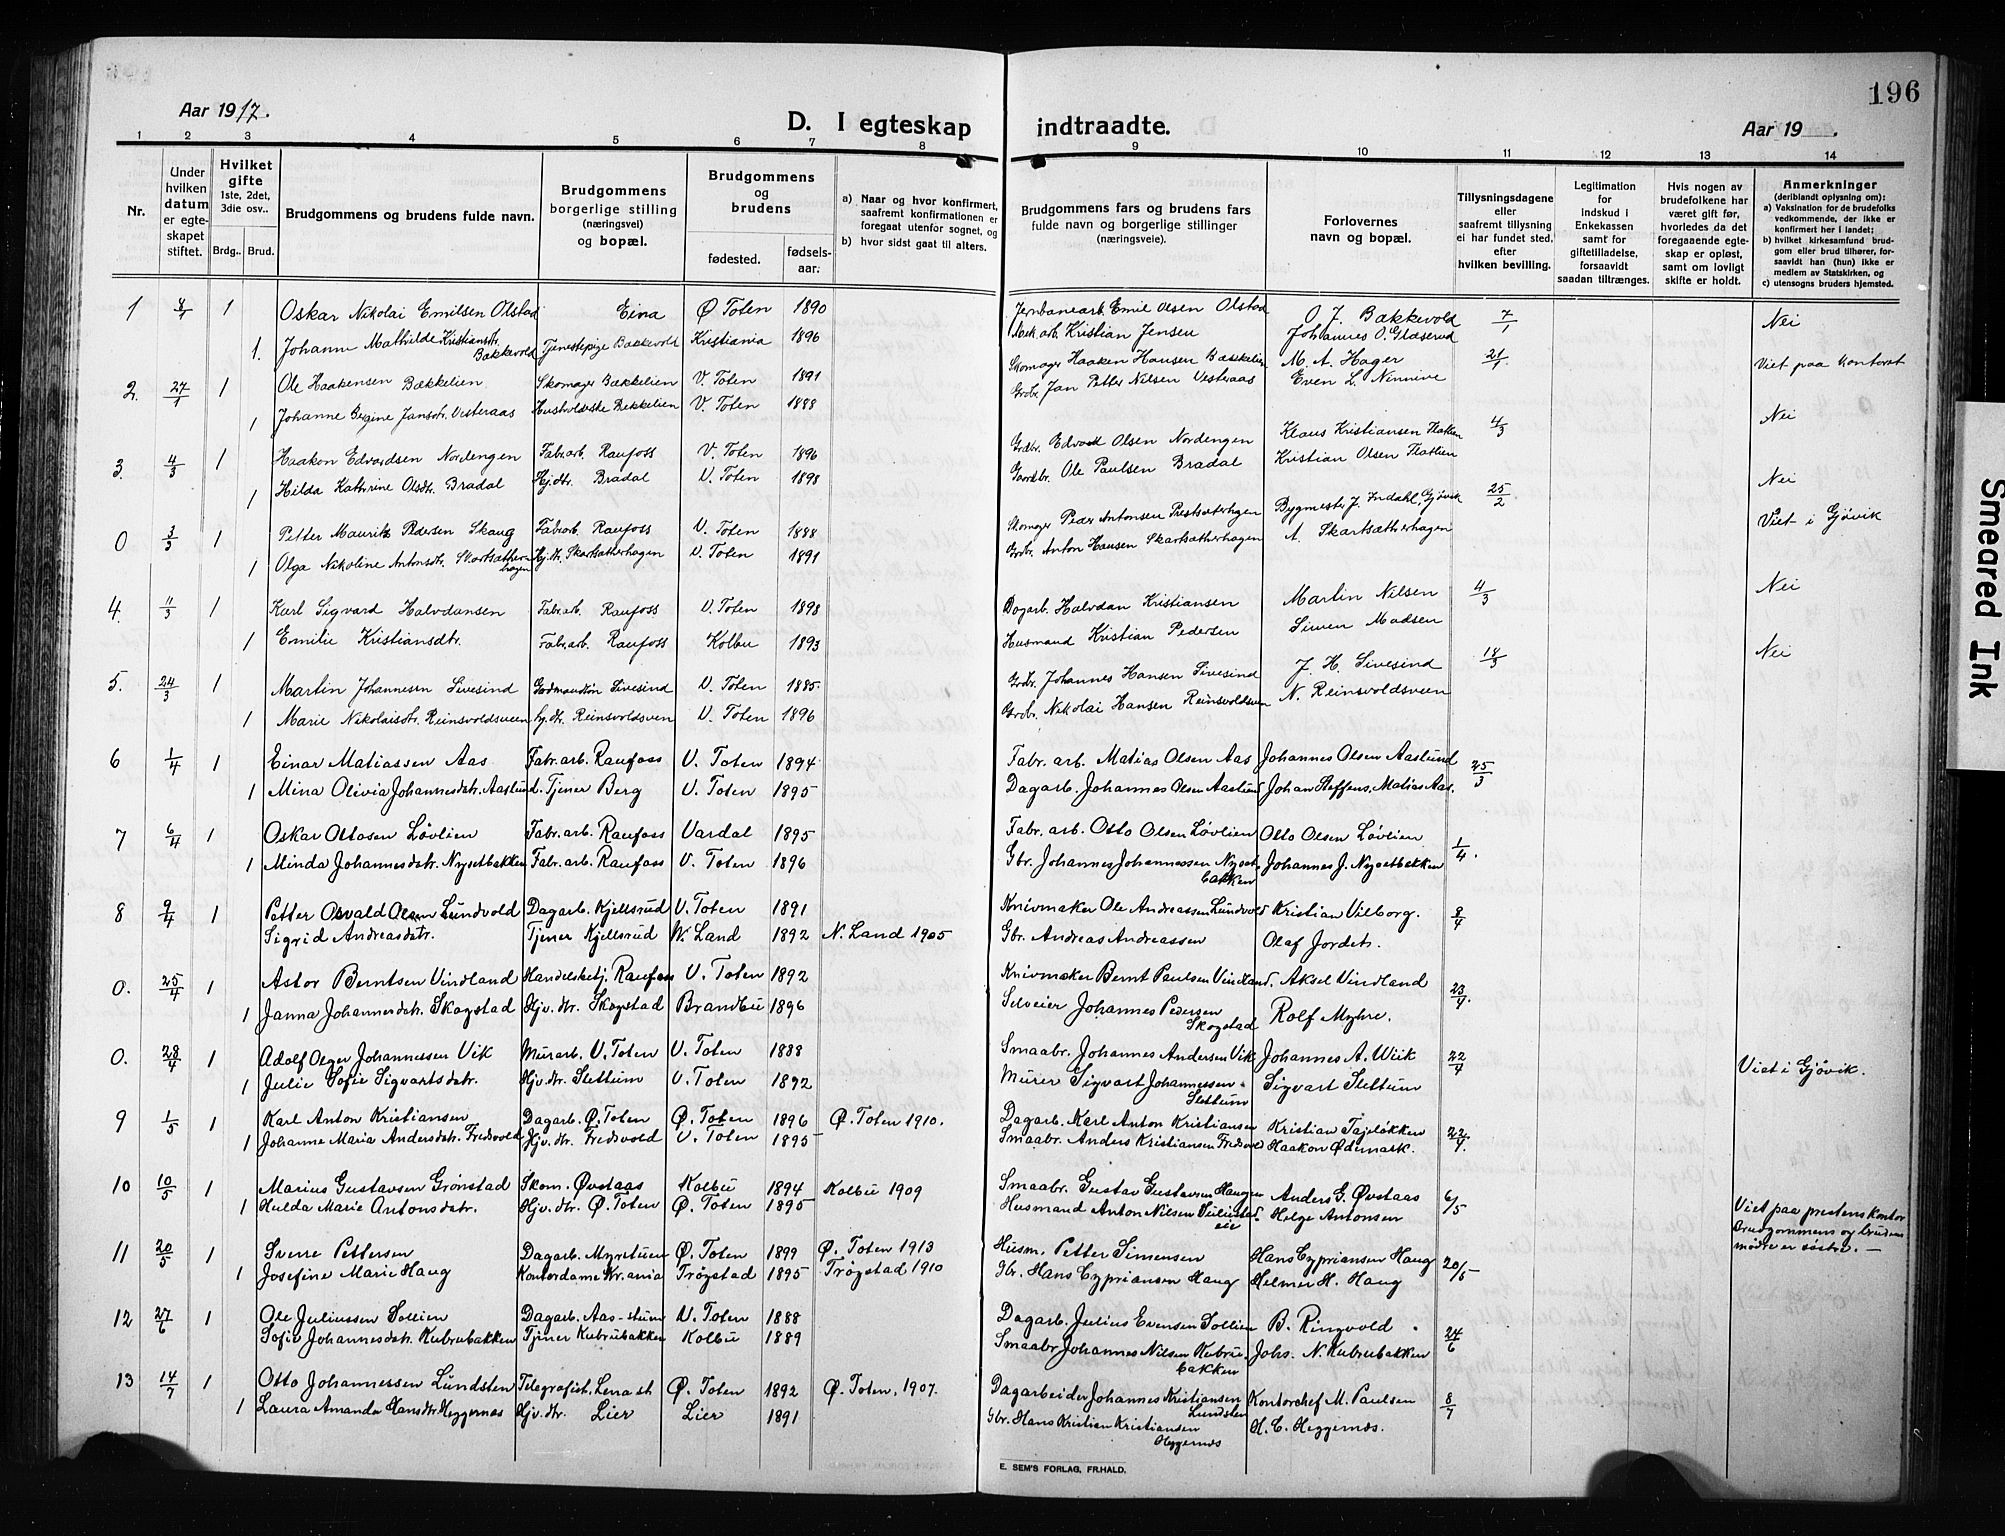 196
Aar 1917.
D. I egteskap indtraadte.
Aar 19 .
1 2 3 4 5 6 7 8 9 10 11 12 13 14
Nr.
Under hvilken datum er egteskapet stiftet.
Hvilket gifte 1ste, 2det, 3die osv..
Brdg.. Brud.
Brudgommens og brudens fulde navn.
Brudgommens borgerlige stilling (næringsvei) og bopæl.
Brudgommens og brudens
fødested. fødselsaar.
a) Naar og hvor konfirmert, saafremt konfirmationen er foregaat utenfor sognet, og
b) hvor sidst gaat til alters.
Brudgommens fars og brudens fars fulde navn og borgerlige stillinger (næringsveie).
Forlovernes navn og bopæl.
Tillysningsdagene eller saafremt tillysning ei har fundet sted, efter hvilken bevilling.
Legitimation for indskud i Enkekassen samt for giftetilladelse, forsaavidt saadan tiltrænges.
Hvis nogen av brudefolkene har været gift før, hvorledes da det foregaaende egteskap er opløst, samt om lovligt skifte er holdt.
Anmerkninger (deriblandt oplysning om):
a) Vaksination for de brudefolks vedkommende, der ikke er konfirmert her i landet;
b) hvilket kirkesamfund brudgom eller brud tilhører, forsaavidt han (hun) ikke er medlem av Statskirken, og
c) utensogns bruders hjemsted.
1 8/1 1 Oskar Nikolai Emilsen Olstad Eina Ø Toten 1890 Jernbanearb. Emil Olsen Olstad O. J. Bækkevold 7/1 Nei
1. Johanne Mathilde Kristiansdtr. Bækkevold Tjenestepige Bækkevold Kristiania 1896 Kristian Jensen Johannes O. Glæserud
2. 27/1 1 Ole Haakensen Bækkelien Skomager Bækkelien V. Toten 1891 Skomager Haaken Hansen Bækkelien M. A. Hager 21/1 Viet paa kontoret
1 Johanne Bergine Jansdtr. Vesteraas Husholderske Bækkelien V. Toten 1888 Grdbr. Jan Petter Nilsen Vesteraas Even L. Ninnive
3. 4/3 1 Haakon Edvardsen Nordengen Fabr.arb. Raufoss V. Toten 1896 Grdbr. Edvard Olsen Nordengen Klaus Kristiansen Flatlien 4/3 Nei
1 Hilda Kathrine Olsdtr. Bradal Hj.dtr. Bradal V. Toten 1898 Gaardbr. Ole Paulsen Bradal Kristian Olsen Flatlien
0 3/3 1 Petter Mauritz Pedersen Skaug Fabr.arb Raufoss V. Toten 1888 Skomager Peder Antonsen Prestsæterhagen Bygmester J. Indahl, Gjøvik 25/2 Nei
Viet i Gjøvik
1 Olga Nikoline Antonsdtr. Skartsætherhagen Hj.dtr. Skartsætherhagen V. Toten 1891 Grdbr. Anton Hansen Skartsætherhagen A. Skartsætherhagen
4. 11/3 1 Karl Sigvard Halvdansen Fabr.arb. Raufoss V. Toten 1898 Dagarb. Halvdan Kristiansen Martin Nilsen 4/3 Nei
1 Emilie Kristiansdtr. Fabr.arb. Raufoss Kolbu 1893 Husmand Kristian Pedersen Simen Madsen
5. 24/3 1 Martin Johannesen Sivesind Sivesind V. Toten 1885. Grdbr. Johannes Hansen Sivesind J. H. Sivesind 18/3 Nei
1 Marie Nikolaisdtr. Reinsvoldsveen hj.dtr. Reinsvoldsven V. Toten 1896 Grdbr. Nikolai Hansen Reinsvoldsven N. Reinsvoldsveen
6 1/4 1 Einar Matiassen Aas Fabr.arb. Raufoss V. Toten 1894 Fabr. arb. Matias Olsen Aas Johannes Olsen Aaslund 25/3
1 Mina Olivia Johannesdatr. Aaslund. Tjener Berg V. Toten 1895 Dagarb. Johannes Olsen Aaslund Johan Steffens. Matias Aas.
7 6/4 1 Oskar Ottosen Løvlien Fabr.arb. Raufoss Vardal 1895 Fabr. arb. Otto Olsen Løvlien Otto Olsen Løvlien 1/4.
1 Minda Johannesdatr. Nysetbakken Fabr.arb. Raufoss V. Toten 1896 Gbr. Johannes Johannessen Nysetbakken Johannes J. Nysetbakken
8 9/4 1 Petter Osvald Olsen Lundvold Dagarb. Kjellsrud V. Toten 1891 Knivmaker Ole Andreassen Lundvold Kristian Vilborg. 8/4
Sigrid Andreasdatr. Tjener Kjellsrud N. Land 1892 N. Land 1905 Gbr. Andreas Andreassen Olaf Jordet.
0. 25/4 1 Astor Berntsen Vindland Handelsbetj. Raufoss V. Toten 1892 Knivmaker Bernt Paulsen Vindland. Aksel Vindland 23/4.
1 Janna Johannesdatr. Skogstad Hjv. dtr. Skogstad Brandbu 1896 Selveier Johannes Pedersen Skogstad Rolf Myhre.
0. 28/4 1 Adolf Olger Johannessen Vik Murarb. V. Toten V. Toten 1888 Smaabr. Johannes Andersen Vik Johannes A. Wiik 22/4 Viet i Gjøvik.
1 Julie Sofie Sigvartsdatr. Hjv. dtr. Slettum V. Toten 1892 Murer Sigvart Johannessen Slettum Sigvart Slettum
9 1/5 1 Karl Anton Kristiansen Dagarb. Ø. Toten Ø. Toten 1896 Ø. Toten 1910. Dagarb. Karl Anton Kristiansen Kristian Tajeløkken 22/4.
1 Johanne Maria Andersdatr. Fredsvold Hjv. dtr. Fredsvold V. Toten 1895 Smaabr. Anders Kristiansen Fredsvold Haakon Ødemark.
10 10/5 1 Marius Gustavsen Grønstad Skom. Øvstaas Kolbu 1894 Kolbu 1909 Smaabr. Gustav Gustavsen Haugen Anders G. Øvstaas 6/5
1 Hulda Marie Antonsdatr. Hjv. dtr. Ø. Toten Ø. Toten 1895 Husmand Anton Nilsen Helge Antonsen
11 20/5 1 Sverre Pettersen Dagarb. Myrstuen Ø. Toten 1899 Ø. Toten 1913 Husm. Petter Simensen Hans Cypriansen Haug 20/5 Viet paa prestens kontor Brudgommens og brudens mødre er søstre. —
1 Josefine Marie Haug Kontordame Kr.ania Trøgstad 1895 Trøgstad 1910 Gbr. Hans Cypriansen Haug Helmer H. Haug
12 27/6 1 Ole Juliussen Sollien Dagarb. Aas-stum V. Toten 1888 Dagarb. Julius Evensen Sollien B. Ringvold 24/6
Sofie Johannesdatr. Kubrubakken Tjener Kubrubakken Kolbu 1889 Smaabr Johannes Nilsen Kubrubakken Johs. N. Kubrubakken
13 14/7 1 Otto Johannessen Lundsten Telegrafist, Lena st Ø. Toten 1892 Ø. Toten, 1907. Dagarbeider Johannes Kristiansen Lundsten Kontorchef M. Paulsen 8/7
1 Laura Amanda Hansdtr Heggernæs Hjv. dtr. Lier Lier 1891 Gbr. Hans Kristian Kristiansen Heggernæs H. C. Heggernæs.
E. SEM'S FORLAG, FR.HALD.
Smeared Ink